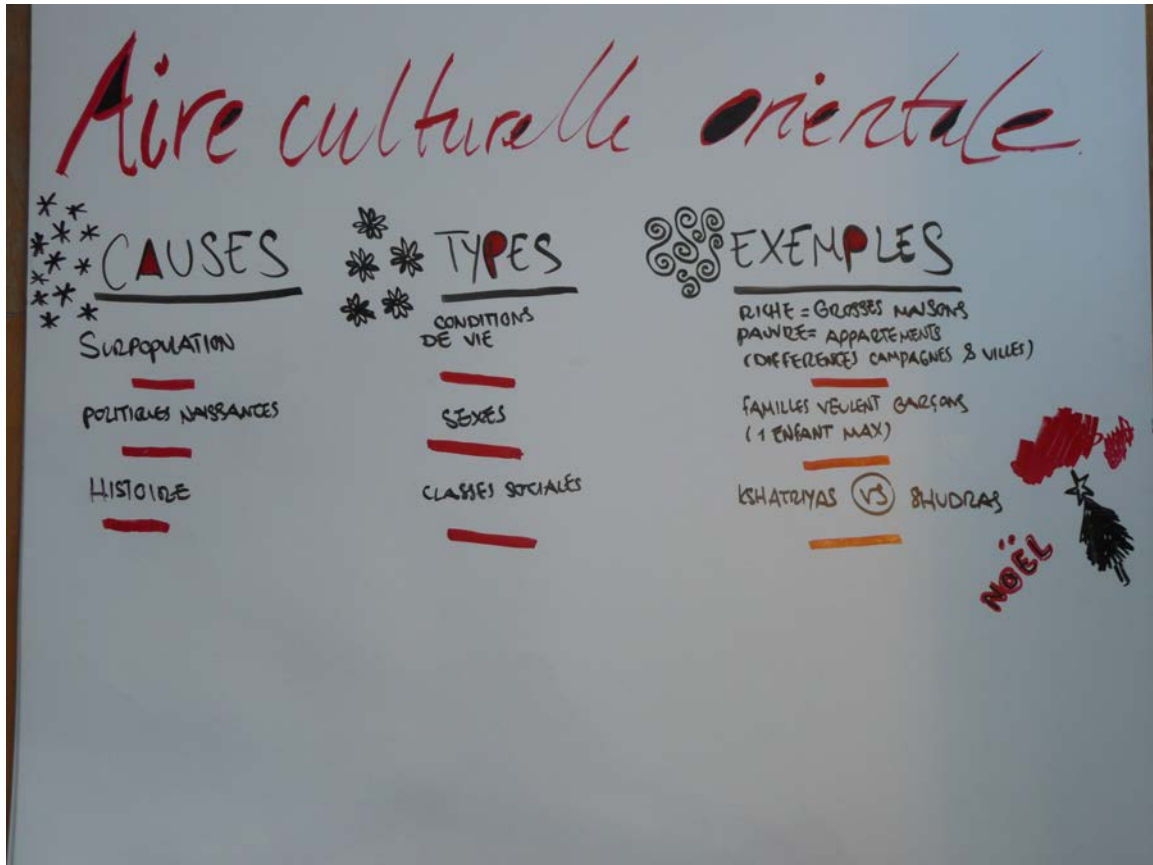 Aire culturelle orientale
CAUSES
SURPOPULATION
POLITIQUES NAISSANCES
HISTOIRE
TYPES
CONDITIONS
DE VIE
SEXES
CLASSES SOCIALES
EXEMPLES
RICHE = GROSSES MAISONS
PAUVRE = APPARTEMENTS
(DIFFERENCES CAMPAGNES & VILLES)
FAMILLES VEULENT GARÇONS
(1 ENFANT MAX)
KSHATRIYAS VS SHUDRAS
NOËL